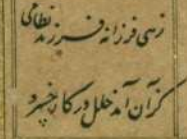 زهی فرزانه فرزند نظامی
کزان آمد خلل در کار خسرو